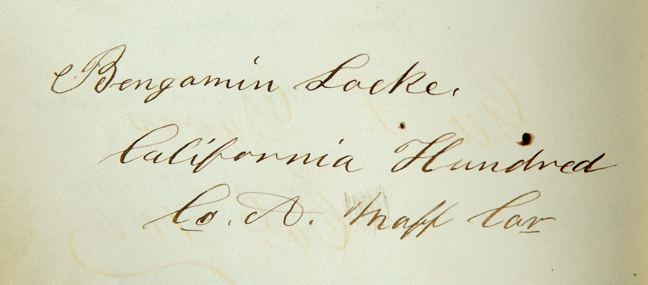 Bengamin Locke.
California Hundred
Co. A. Mass Cav